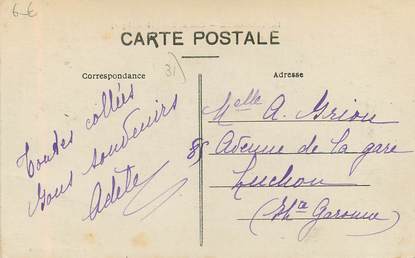 6 €
CARTE POSTALE
Correspondance
31
Adresse
Toutes collées
Bons souvenirs
Adèle
Melle A. Grion
85 Avenue de la gare
Luchon
(Hte Garonne)